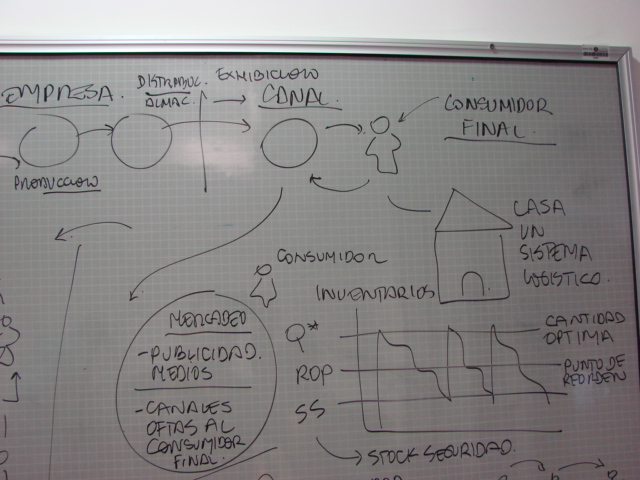 EMPRESA.
DISTRIBUC.
ALMAC.
EXHIBICION
CANAL.
CONSUMIDOR
FINAL.
PRODUCCION
CASA
UN
SISTEMA
LOGISTICO.
CONSUMIDOR
INVENTARIOS
MERCADEO
- PUBLICIDAD.
MEDIOS
- CANALES
OFTAS AL
CONSUMIDOR
FINAL.
Q*
ROP
SS
CANTIDAD
OPTIMA
PUNTO DE
REORDEN
STOCK SEGURIDAD.